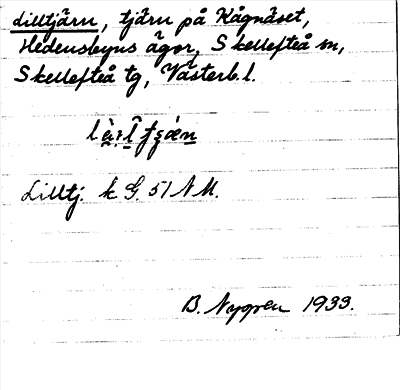 Lilltjärn, tjärn på Kågnäset,
Hedensbyns ägor, Skellefteå sn,
Skellefteå tg, Västerb. l.
Lilltj. k G. 51 NM.
B. Nygren 1933.